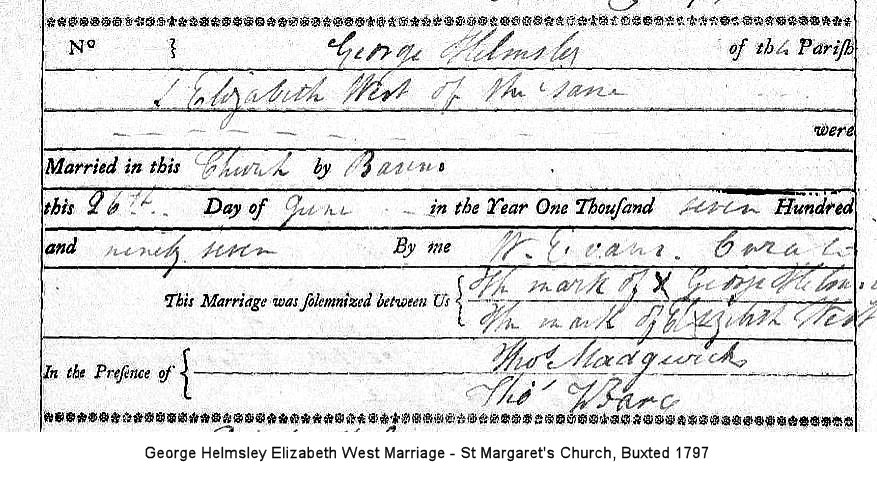 No } George Helmsley of the Parish
& Elizabeth West of the same
were
Married in this Church by Banns
this 26th Day of June in the Year One Thousand seven Hundred
and ninety seven By me W. Evans. Curate
This Marriage was solemnized between Us { The mark of X George Helms
The mark of Elizabeth West
In the Presence of { Thos Madgwick
Thos
George Helmsley Elizabeth West Marriage - St Margaret's Church, Buxted 1797